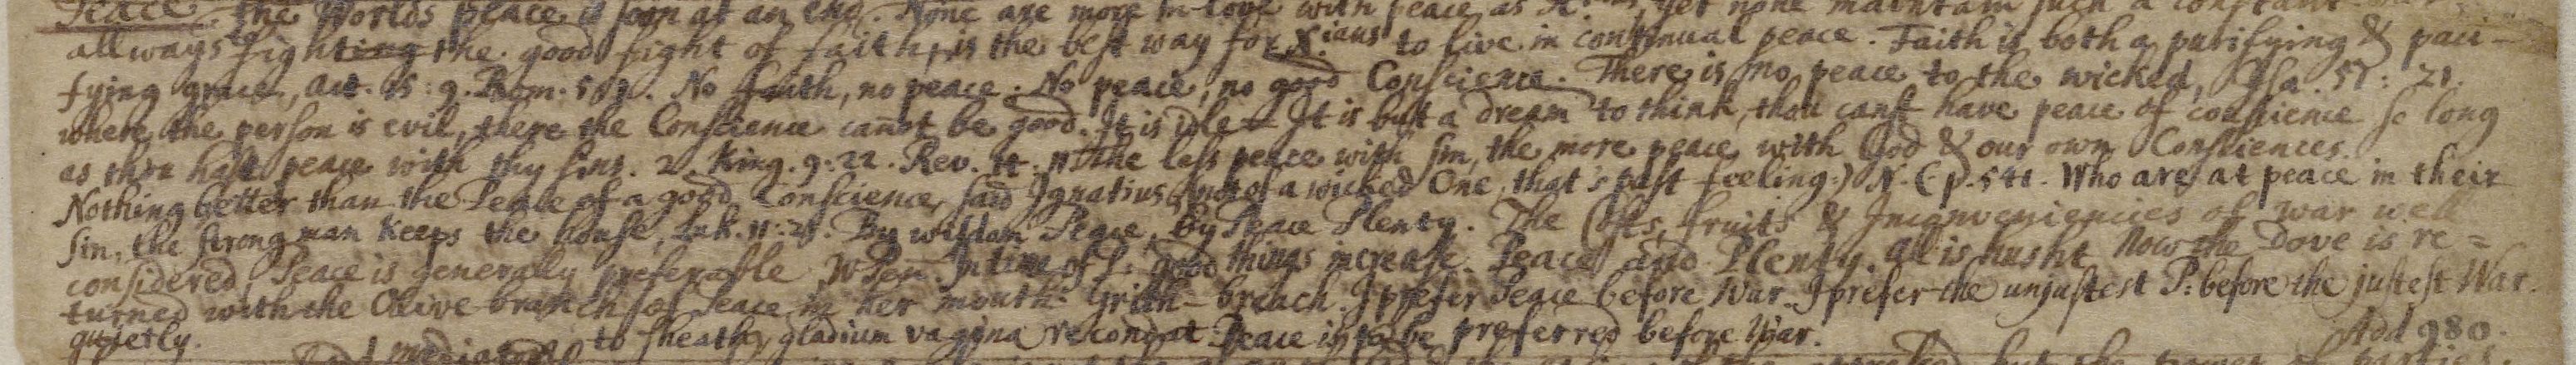 Peace. the Worlds peace is soon at an end. None are more in love with peace as Xians, yet none maintain such a constant war
allways to fighting the good fight of faith, is the best way for Xians to live in continual peace. Faith is both a purifying & paci-
fying grace, Act. 15:9. Rom. 5:1. No faith, no peace. No peace, no good Conscience. There is no peace to the wicked, Isa. 57:21.
where the person is evil, there the Conscience cañot be good. It is idle It is but a dream to think, thou canst have peace of conscience so long
as thou hast peace with thy sins. 2 King. 9:22. Rev. 11 the less peace with sin, the more peace with God & our own Consciences.
Nothing better than the Peace of a good Conscience, said Ignatius (not of a wicked One, that's past feeling.) N. (p. 541. Who are at peace in their
sin, the strong man keeps the house, Luk. 11:21. By wisdom Peace, By Peace Plenty. The Costs, fruits & Inconveniencies of war well
considered, Peace is generally preferable, W Pen. In time of P: good things increase. Peace and Plenty. All is husht Now the Dove is re=
turned with the Olive branch of Peace in her mouth. Grith-breach. I prefer Peace before War. I prefer the unjustest P: before the justest War.
quietly. to sheath, gladium vagina recondat Peace is to be preferred before War. Add 980.